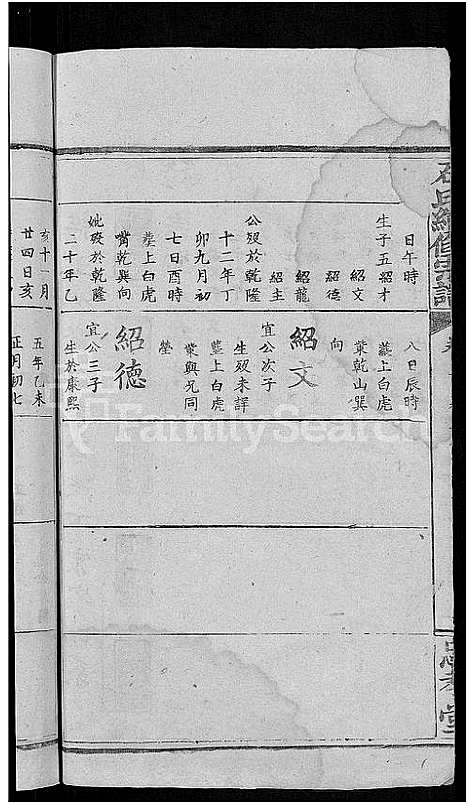 石氏續修宗譜
卷
忠孝堂
日午時
生子五紹才
紹文
紹德
紹龍
紹主
公歿於乾隆
十二年丁
卯九月初
七日酉時
塟上白虎
嘴乾巽向
妣歿於乾隆
二十年乙
八日辰時
塟上白虎
業乾山巽
向
紹文
宜公次子
生歿未詳
塟上白虎
業與兄同
塋
紹德
宜公三子
生於康熙
亥十一月
廿四日亥
五年乙未
正月初七
FamilySearch